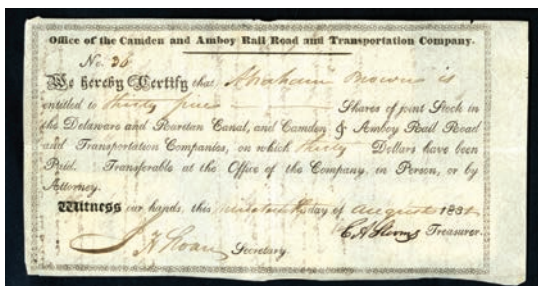 Office of the Camden and Amboy Rail Road and Transportation Company.
No. 36
We hereby Certify that Abraham Brown is
entitled to thirty five Shares of joint Stock in
the Delaware and Raritan Canal, and Camden & Amboy Rail Road
and Transportation Companies, on which thirty Dollars have been
Paid. Transferable at the Office of the Company, in Person, or by
Attorney.
Witness our hands, this day of August 183
Secretary. Treasurer.